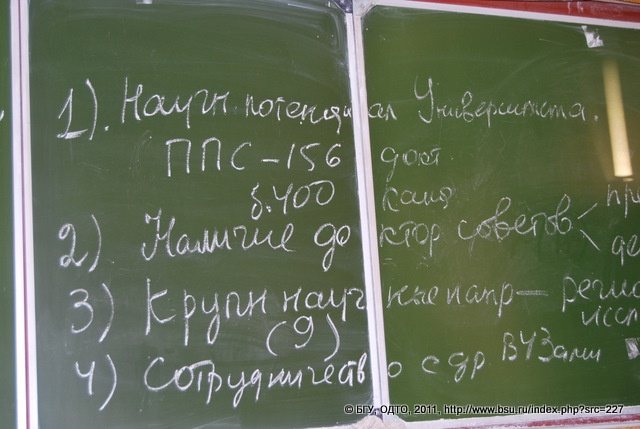 1). Научн. потенциал Университета.
ППС – 156 докт.
б. 400 канд
2) Наличие доктор советов < пр
де
3) Крупн научные напр – регио
(9) иссл
4) Сотрудничество с др ВУЗами
© БГУ, ОДТО, 2011, http://www.bsu.ru/index.php?src=227